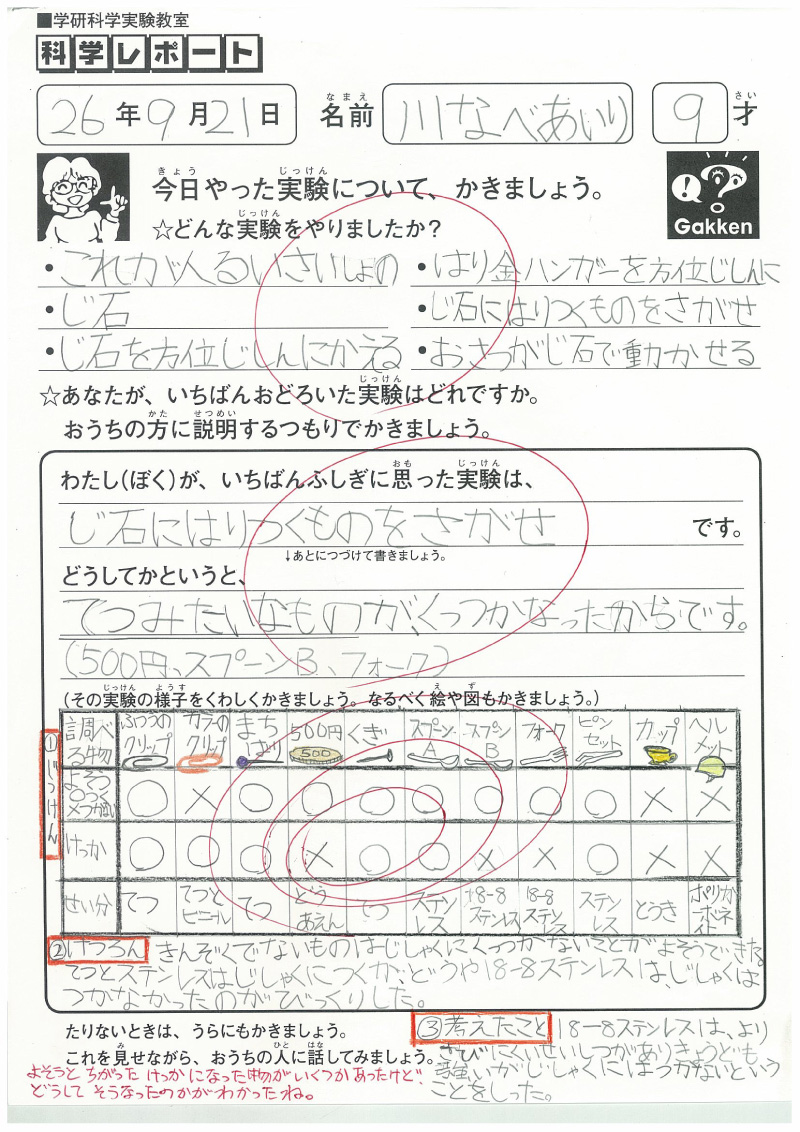 ■学研科学実験教室
科学レポート
26年9月21日 名前 川なべあいり 9才
なまえ さい
きょう じっけん
今日やった実験について、かきましょう。
じっけん
☆どんな実験をやりましたか?
Gakken
・これが人るいさいしょの
・じ石
・じ石を方位じしんにかえる
・はり金ハンガーを方位じしんに
・じ石にはりつくものをさがせ
・おさつがじ石で動かせる
じっけん
☆あなたが、いちばんおどろいた実験はどれですか。
かた せつめい
おうちの方に説明するつもりでかきましょう。
おも じっけん
わたし(ぼく)が、いちばんふしぎに思った実験は、
じ石にはりつくものをさがせ です。
↓あとにつづけて書きましょう。
どうしてかというと、
てつみたいなものが、くっつかなったからです。
(500円、スプーンB、フォーク)
じっけん ようす え ず
(その実験の様子をくわしくかきましょう。なるべく絵や図もかきましょう。)
①じっけん
調べる物 ふつうのクリップ カラーのクリップ まちばり 500円 くぎ スプーンA スプンB フォーク ピンセット カップ ヘルメット
500
よそう ○つく ×つかない ○ × ○ ○ ○ ○ ○ ○ ○ × ×
けっか ○ ○ ○ × ○ ○ × × ○ × ×
せい分 てつ てつとビニール てつ どうあえん てつ ステンレス 18-8ステンレス 18-8ステンレス ステンレス とうき ポリカーボネイト
②けつろん きんぞくでないものはじしゃくにくっつかないことがよそうできた。
てつとステンレスはじしゃくにつくが、どうや18-8ステンレスは、じしゃくは
つかなかったのがびっくりした。
たりないときは、うらにもかきましょう。
み ひと はな
これを見せながら、おうちの人に話してみましょう。
③考えたこと 18-8ステンレスは、より
さびにくいせいしつがありきょうども
強いがじしゃくにはつかないという
ことをしった。
よそうとちがったけっかになった物がいくつかあったけど、
どうしてそうなったのかがわかったね。